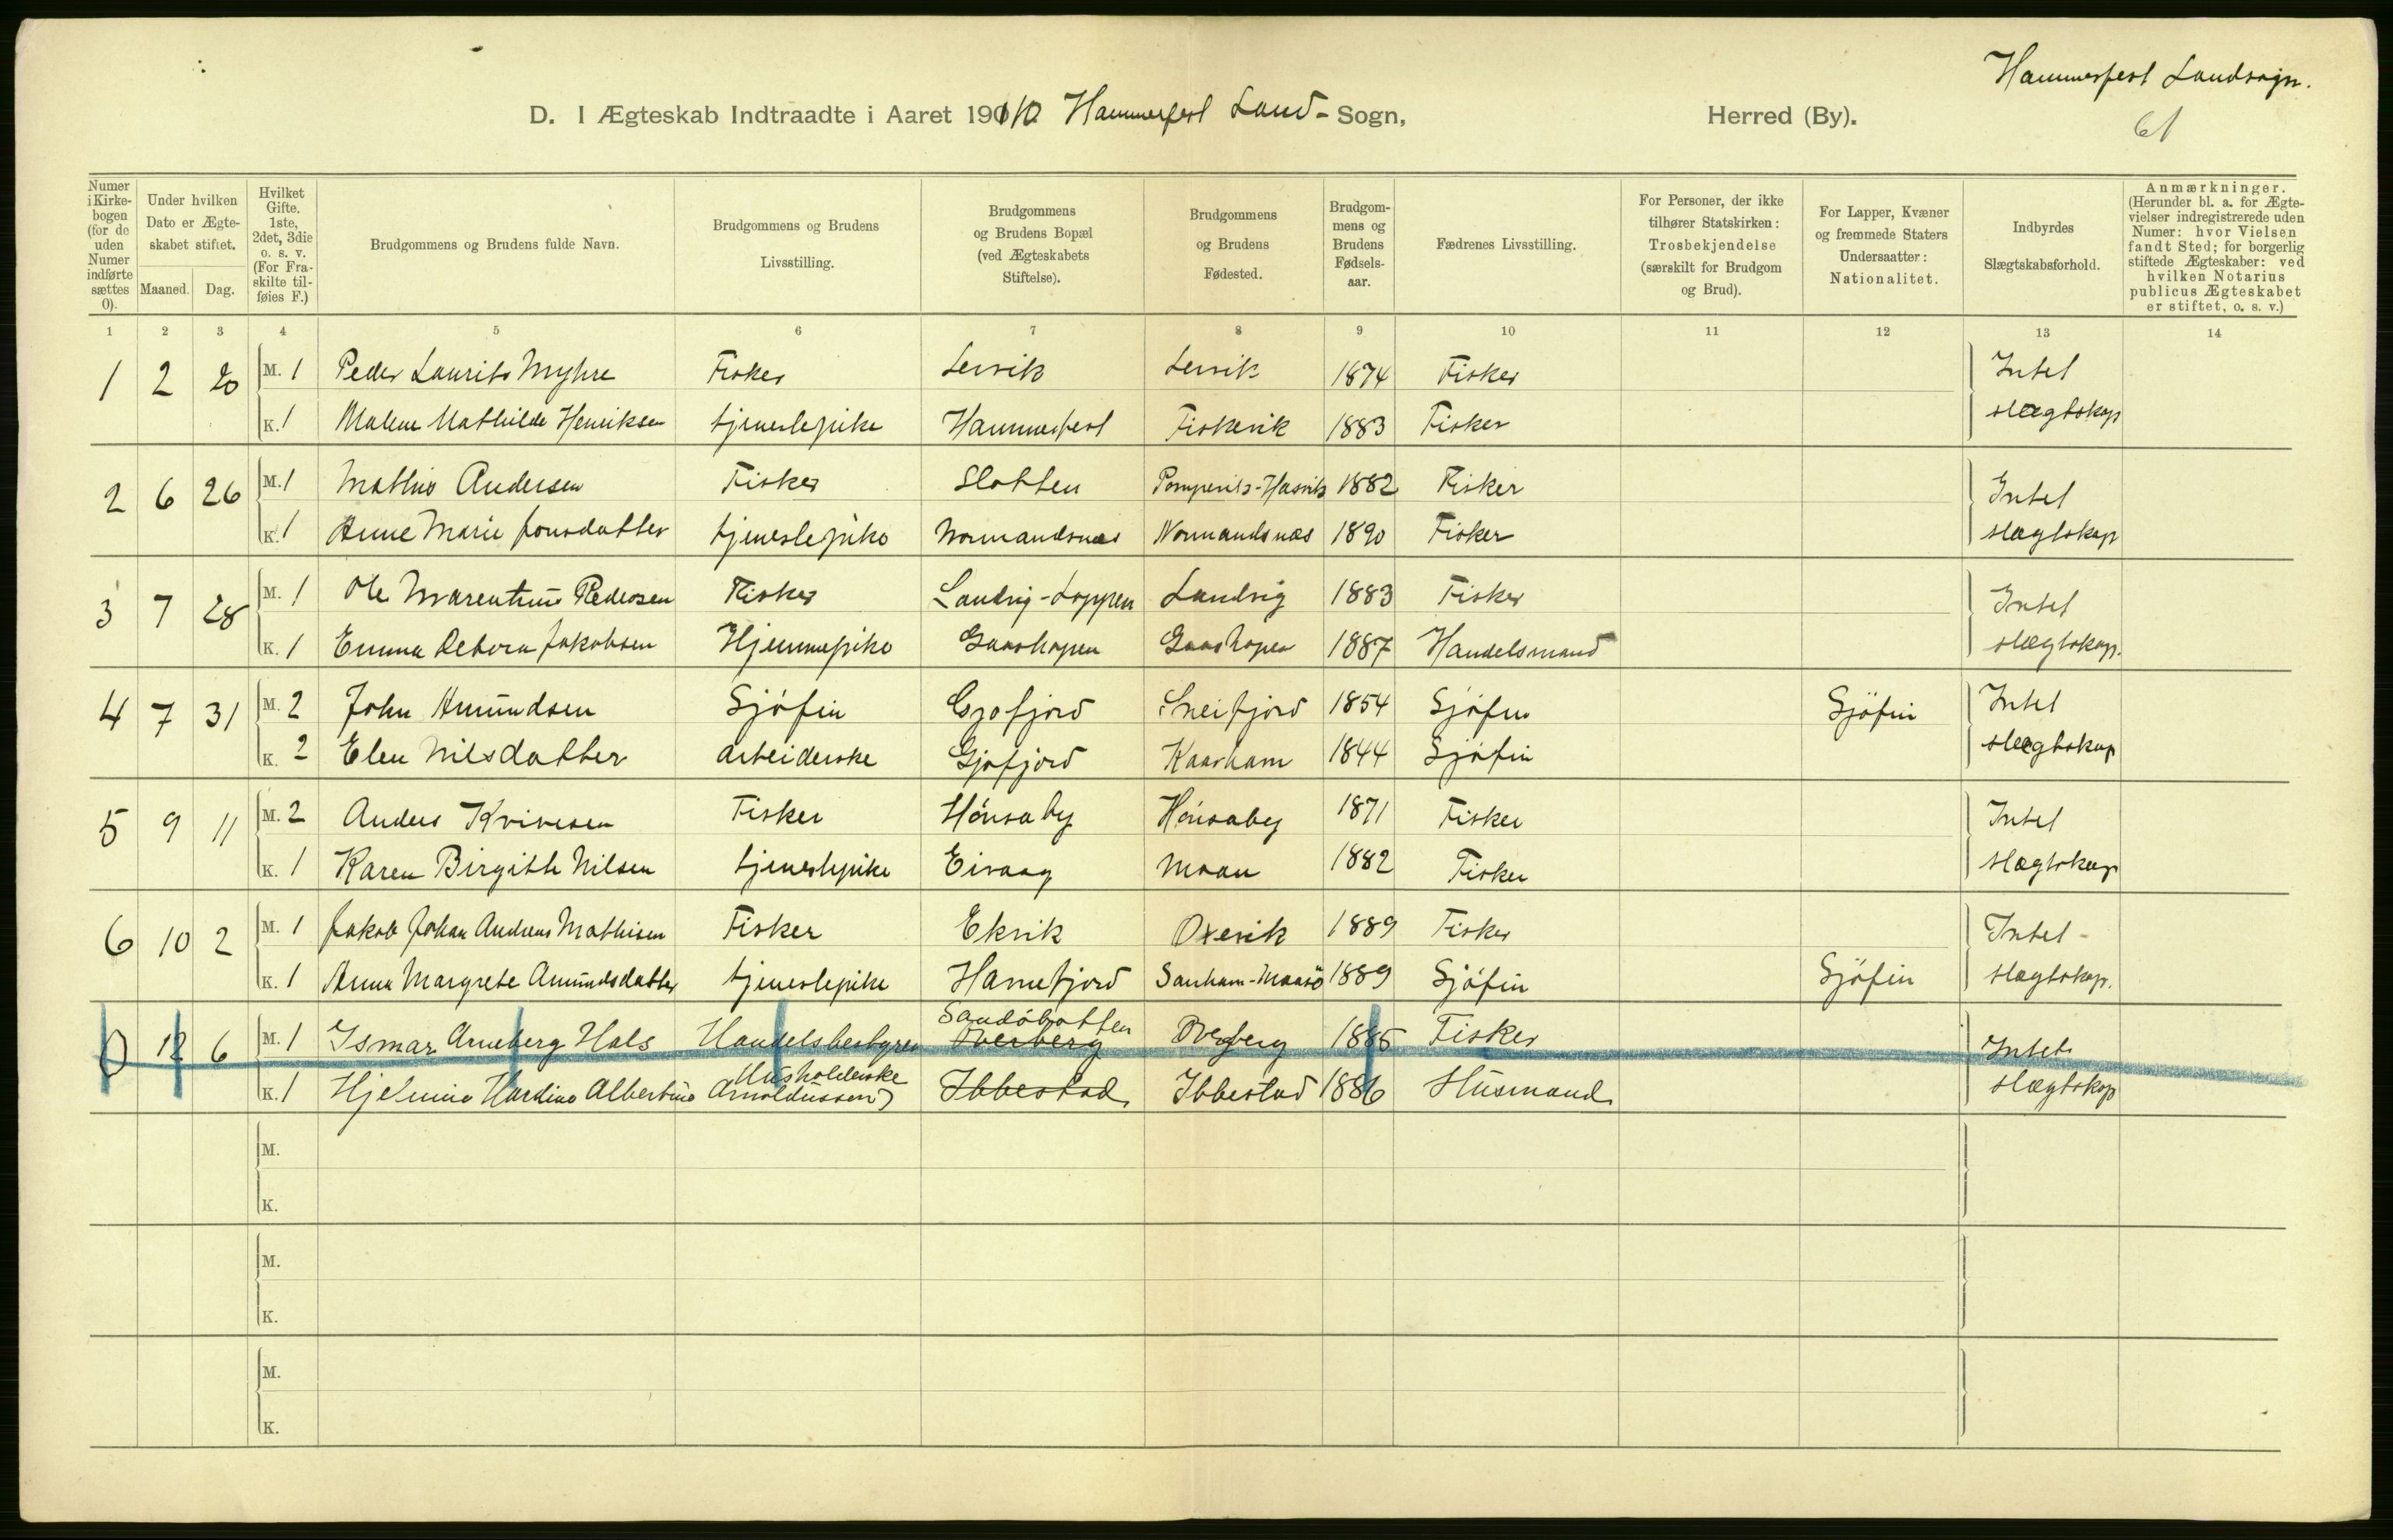 Hammerfest Landsogn.
D. I Ægteskab Indtraadte i Aaret 1910 Hammerfest Land- Sogn, Herred (By).
61
Numer i Kirke-bogen (for de uden Numer indførte sættes 0).
Under hvilken Dato er Ægte-skabet stiftet.
Maaned. Dag.
Hvilket Gifte. 1ste, 2det, 3die o. s. v. (For Fra-skilte til-føies F.)
Brudgommens og Brudens fulde Navn.
Brudgommens og Brudens Livsstilling.
Brudgommens og Brudens Bopæl (ved Ægteskabets Stiftelse).
Brudgommens og Brudens Fødested.
Brudgom-mens og Brudens Fødsels-aar.
Fædrenes Livsstilling.
For Personer, der ikke tilhører Statskirken: Trosbekjendelse (særskilt for Brudgom og Brud).
For Lapper, Kvæner og fremmede Staters Undersaatter: Nationalitet.
Indbyrdes Slægtskabsforhold.
Anmærkninger. (Herunder bl. a. for Ægte-vielser indregistrerede uden Numer: hvor Vielsen fandt Sted; for borgerlig stiftede Ægteskaber: ved hvilken Notarius publicus Ægteskabet er stiftet, o. s. v.)
1 2 3 4 5 6 7 8 9 10 11 12 13 14
1 2 20 M. 1 Peder Laurits Myhre Fisker Lervik Lervik 1874 Fisker Intet
K. 1 Malene Mathilde Henriksen tjenestepike Hammerfest Fiskevik 1883 Fisker slægtskap
2 6 26 M. 1 Mathis Andersen Fisker Slotten 1882 Fisker Intet
K. 1 Anne Marie Jonsdatter tjenestepike Normandsnæs Normandsnæs 1890 Fisker slægtskap
3 7 28 M. 1 Ole Marentius Pedersen Fisker Sandvig-Loppen Sandvig 1883 Fisker Intet
K. 1 Emma Debora Jakobsen Hjemmepike Gaashopen Gaashopen 1887 Handelsmand slægtskap.
4 7 31 M. 2 John Amundsen Sjøfin Gjøfjord Sneifjord 1854 Sjøfin Sjøfin Intet
K. 2 Elen Nilsdatter arbeiderske Gjøfjord Kaarhamn 1844 Sjøfin slægtskap
5 9 11 M. 2 Anders Kvivesen Fisker Hønsaby Hønsaby 1871 Fisker Intet
K. 1 Karen Birgitte Nilsen tjenestepike Eivaag 1882 Fisker slægtskap
6 10 2 M. 1 Jakob Johan Andreas Mathisen Fisker Ekvik Oxevik 1889 Fisker Intet -
K. 1 Anna Margrete Amundsdatter tjenestepike Hamefjord Sanham-Maasö 1889 Sjøfin Sjøfin slægtskap.
0 12 6 M. 1 Ismar Arneberg Hals Handelsbestyrer Sandøbotten Overberg Overberg 1885 Fisker Intet
K. 1 Hjelmine Hardine Albertine Arnoldussen Husholderske Ibbestad Ibbestad 1886 Husmand slægtskap
M.
K.
M.
K.
M.
K.